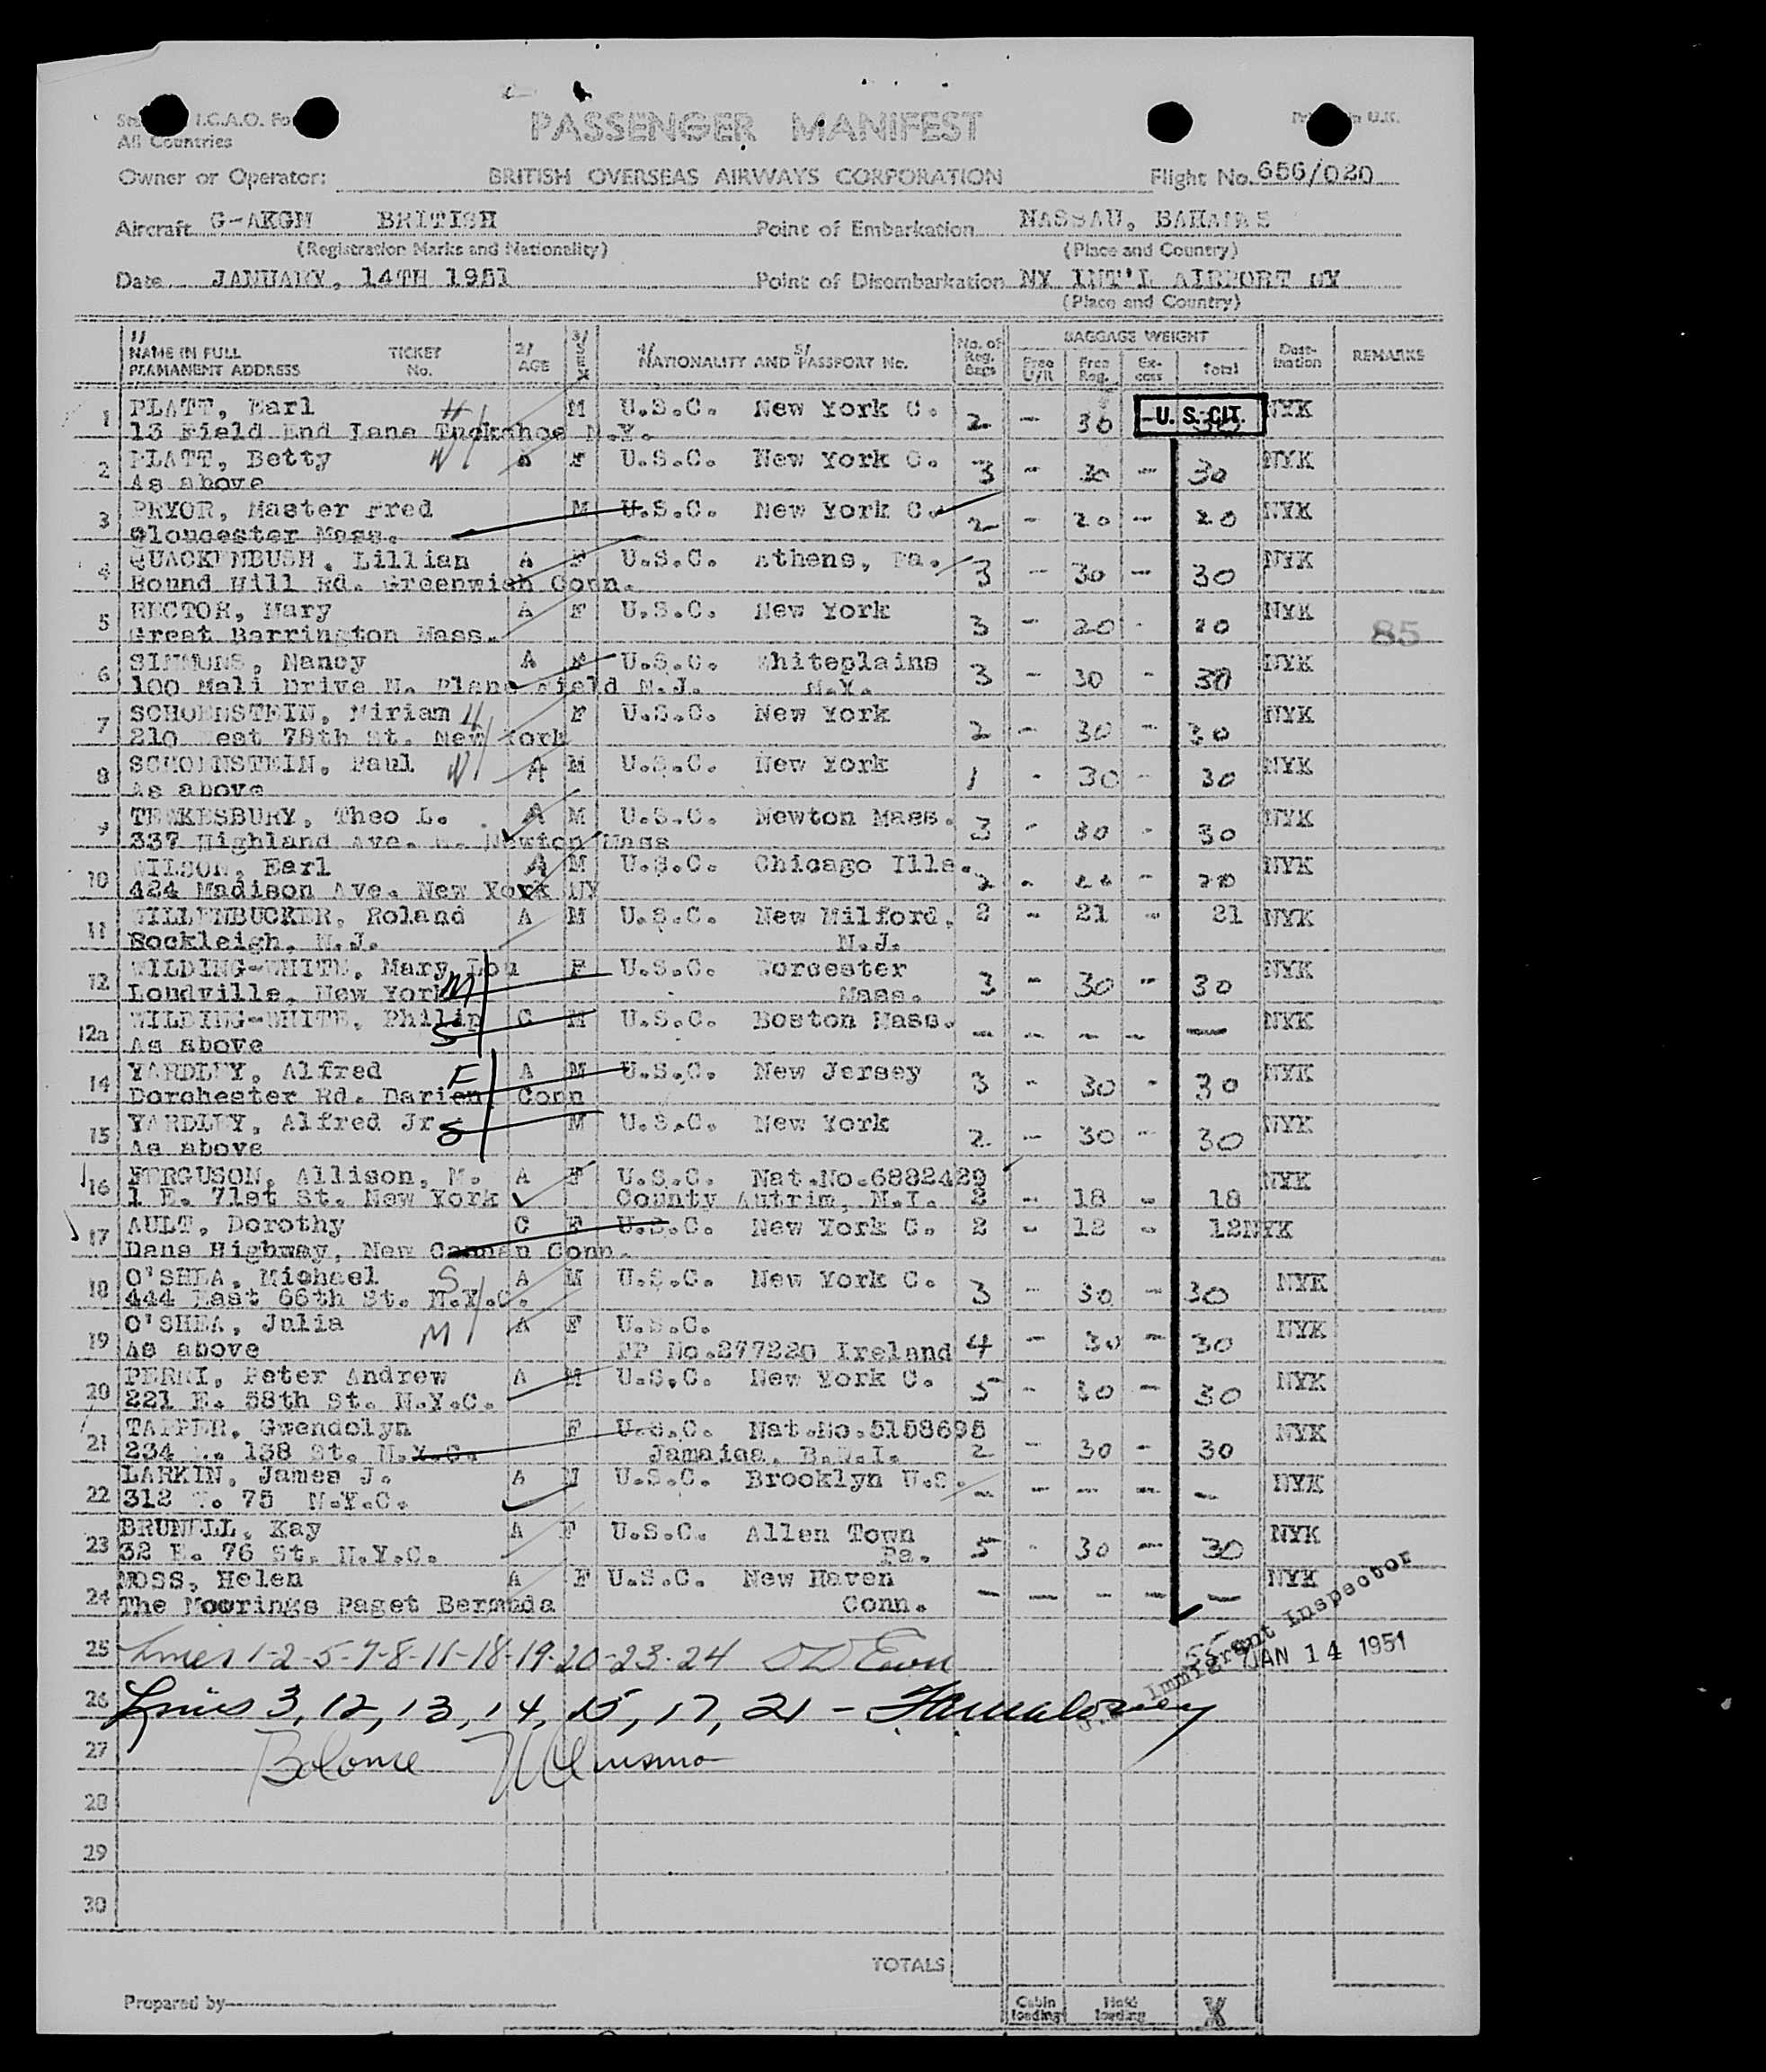 I.C.A.O.
All Countries
PASSENGER MANIFEST
in U.K.
Owner or Operator: BRITISH OVERSEAS AIRWAYS CORPORATION Flight No. 656/020
Aircraft G-AKGM BRITISH Point of Embarkation NASSAU, BAHAMAS
(Registration Marks and Nationality) (Place and Country)
Date JANUARY, 14TH 1951 Point of Disembarkation NY INT'L AIRPORT NY
(Place and Country)
1/ NAME IN FULL PERMANENT ADDRESS TICKET No. 2/ AGE 3/ SEX 4/ NATIONALITY AND 5/ PASSPORT No. No. of Reg. Bags BAGGAGE WEIGHT Free U/R Free Reg. Ex-cess Total Dest-ination REMARKS
1 PLATT, Earl H M U.S.C. New York C. 2 - 30 - U. S. CIT. NYK
13 Field End Lane Tuckahoe N.Y.
2 PLATT, Betty W A F U.S.C. New York C. 3 - 30 - 30 NYK
As above
3 PRYOR, Master Fred M U.S.C. New York C. 2 - 20 - 20 NYK
Gloucester Mass.
4 QUACKENBUSH, Lillian A F U.S.C. Athens, Pa. 3 - 30 - 30 NYK
Round Hill Rd. Greenwish Conn.
5 RECTOR, Mary A F U.S.C. New York 3 - 20 - 20 NYK
Great Barrington Mass. 85
6 SIMMONS, Nancy A F U.S.C. Whiteplains 3 - 30 - 30 NYK
100 Mali Drive N. Plane Field N.J. N.Y.
7 SCHOENSTEIN, Miriam H F U.S.C. New York 2 - 30 - 30 NYK
210 West 78th St. New York
8 SCHOENSTEIN, Paul W A M U.S.C. New York 1 - 30 - 30 NYK
As above
9 TEWKESBURY, Theo L. A M U.S.C. Newton Mass. 3 - 30 - 30 NYK
337 Highland Ave. Newton Mass
10 WILSON, Earl A M U.S.C. Chicago Ills. 2 - - 20 NYK
424 Madison Ave. New York NY
11 WILLENBUCKER, Roland A M U.S.C. New Milford, 2 - 21 - 21 NYK
Rockleigh, N.J. N.J.
12 WILDING-WHITE, Mary Lou F U.S.C. Worcester 3 - 30 - 30 NYK
Loudville, New York M Mass.
12a WILDING-WHITE, Philip C M U.S.C. Boston Mass. - - - - - NYK
As above S
14 YARDLEY, Alfred F A M U.S.C. New Jersey 3 - 30 - 30 NYK
Dorchester Rd. Darien, Conn
15 YARDLEY, Alfred Jr. S M U.S.C. New York 2 - 30 - 30 NYK
As above
16 FERGUSON, Allison, M. A F U.S.C. Nat.No.6882429 NYK
1 E. 71st St. New York County Autrim, N.I. 2 - 18 - 18
17 AULT, Dorothy C F U.S.C. New York C. 2 - 12 - 12 NYK
Dans Highway, New Cannan Conn.
18 O'SHEA, Michael S A M U.S.C. New York C. 3 - 30 - 30 NYK
444 East 66th St. N.Y.C.
19 O'SHEA, Julia M A F U.S.C. NYK
As above PP No.277220 Ireland 4 - 30 - 30
20 PERRI, Peter Andrew A M U.S.C. New York C. 5 - 30 - 30 NYK
221 E. 58th St. N.Y.C.
21 TAPPER, Gwendolyn F U.S.C. Nat.No.5158695 NYK
234 W. 138 St. N.Y.C. Jamaica, B.W.I. 2 - 30 - 30
22 LARKIN, James J. A M U.S.C. Brooklyn U.S. - - - - - NYK
312 75 N.Y.C.
23 BRUNELL, Kay A F U.S.C. Allen Town 5 - 30 - 30 NYK
32 E. 76 St. N.Y.C. Pa.
24 MOSS, Helen A F U.S.C. New Haven - - - - - NYK
The Moorings Paget Bermuda Conn.
25 Lines 1-2-5-7-8-11-18-19-20-23-24
Immigrant Inspector
JAN 14 1951
26 Lines 3, 12, 13, 14, 15, 17, 21 -
27 Balance
28
29
30
TOTALS
Prepared by
Cabin loading Hold loading X